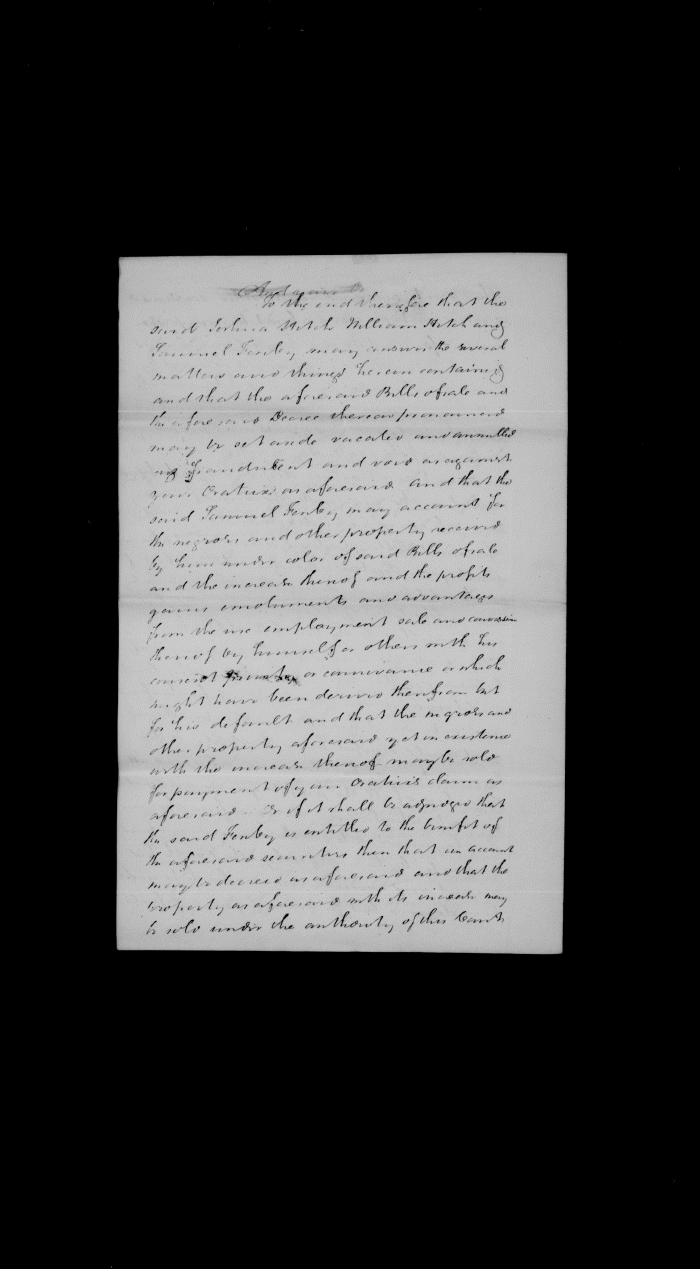 To the end therefore that the
said Joshua Hitch William Hitch and
Samuel Fenby may answer the several
matters and things herein contained
and that the aforesaid Bills of sale and
the aforesaid Decree thereon pronounced
may be set aside vacated and annulled
as fraudulent and void as against
your Oratrix as aforesaid and that the
said Samuel Fenby may account for
the negroes and other property received
by him under color of said Bills of sale
and the increase thereof and the profits
gains emoluments and advantages
from the use employment sale and conversion
thereof by himself or others with his
consent or connivance or which
might have been derived therefrom but
for his default and that the negroes and
other property aforesaid yet in existence
with the increase thereof may be sold
for payment of your Oratrix's claim as
aforesaid. Or if it shall be adjudged that
the said Fenby is entitled to the benefit of
the aforesaid securities then that an account
may be decreed as aforesaid and that the
property as aforesaid with its increase may
be sold under the authority of this Court